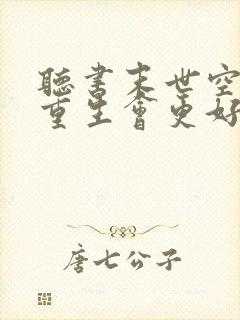 聽書末世空
重生會更好
唐七公子